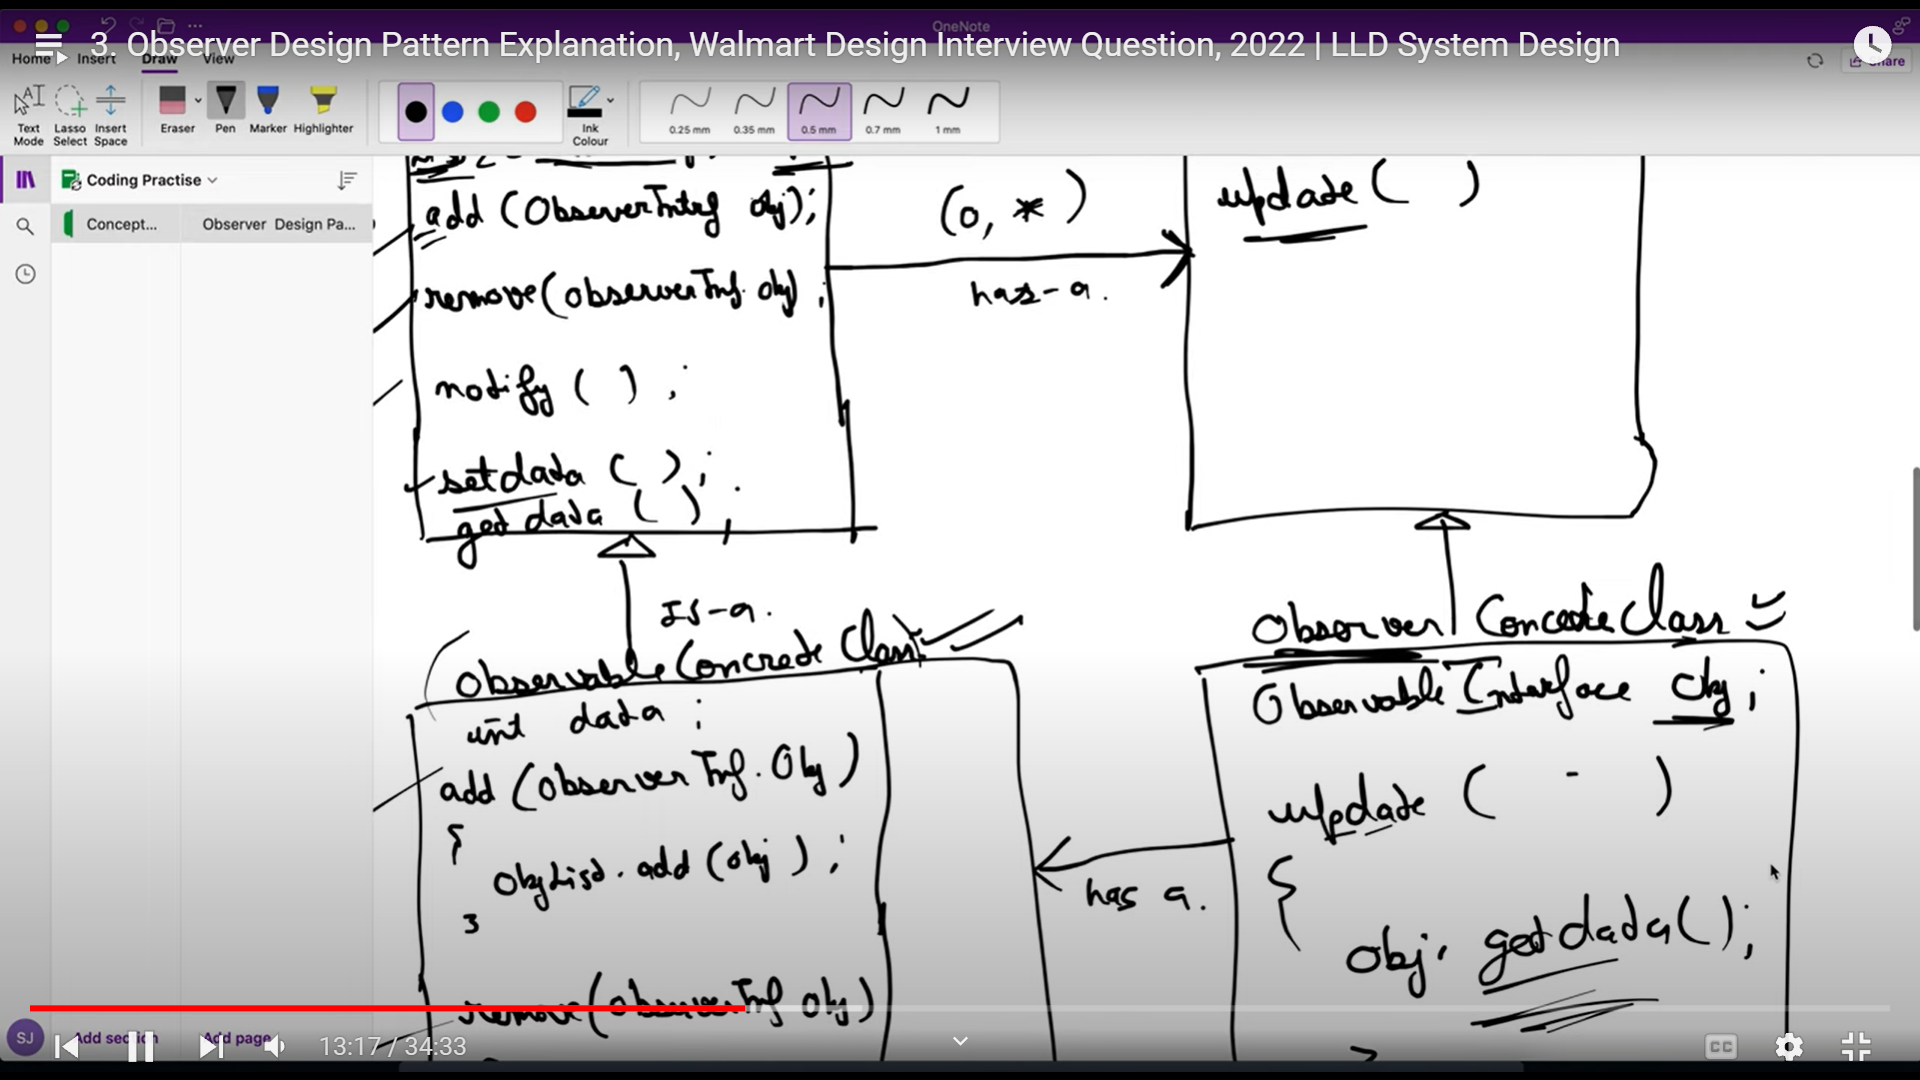 OneNote
3. Observer Design Pattern Explanation, Walmart Design Interview Question, 2022 | LLD System Design
Home Insert Draw View
Share
Text Mode
Lasso Select
Insert Space
Eraser
Pen
Marker
Highlighter
Ink Colour
0.25 mm
0.35 mm
0.5 mm
0.7 mm
1 mm
Coding Practise
Concept...
Observer Design Pa...
add (ObserverIntrf obj);
remove(observerInf. obj) ;
notify ( ) ;
setdata ( ) ;
get data ( ) ;
(0, * )
has-a.
update ( )
IS-a.
Observable Concrete Class
int data ;
add (Observer Inf. Obj )
{
ObjList. add (obj ) ;
}
remove(observerInf obj)
has a.
Observer Concete Class
Observable Interface obj ;
update ( - )
{
obj. getdata();
}
SJ
Add section
Add page
13:17 / 34:33
CC